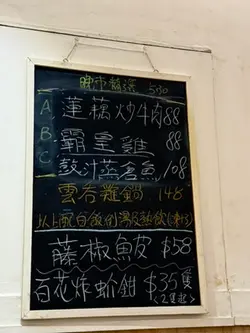 晚市精選 530
A. 蓮藕炒牛肉 88
B. 霸皇雞 88
C. 豉汁蒸倉魚 108
雲吞雞鍋 148
以上配白飯例湯及熱飲
藤椒魚皮 $58
百花炸蚧鉗 $35隻
<2隻起>